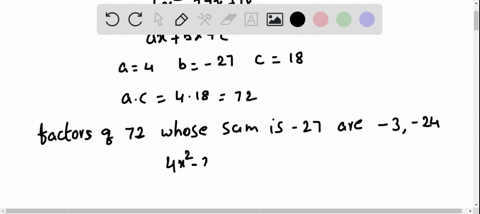 ax²+bx+c
a=4 b=-27 c=18
a.c = 4.18 = 72
factors of 72 whose sum is -27 are -3,-24
4x²-